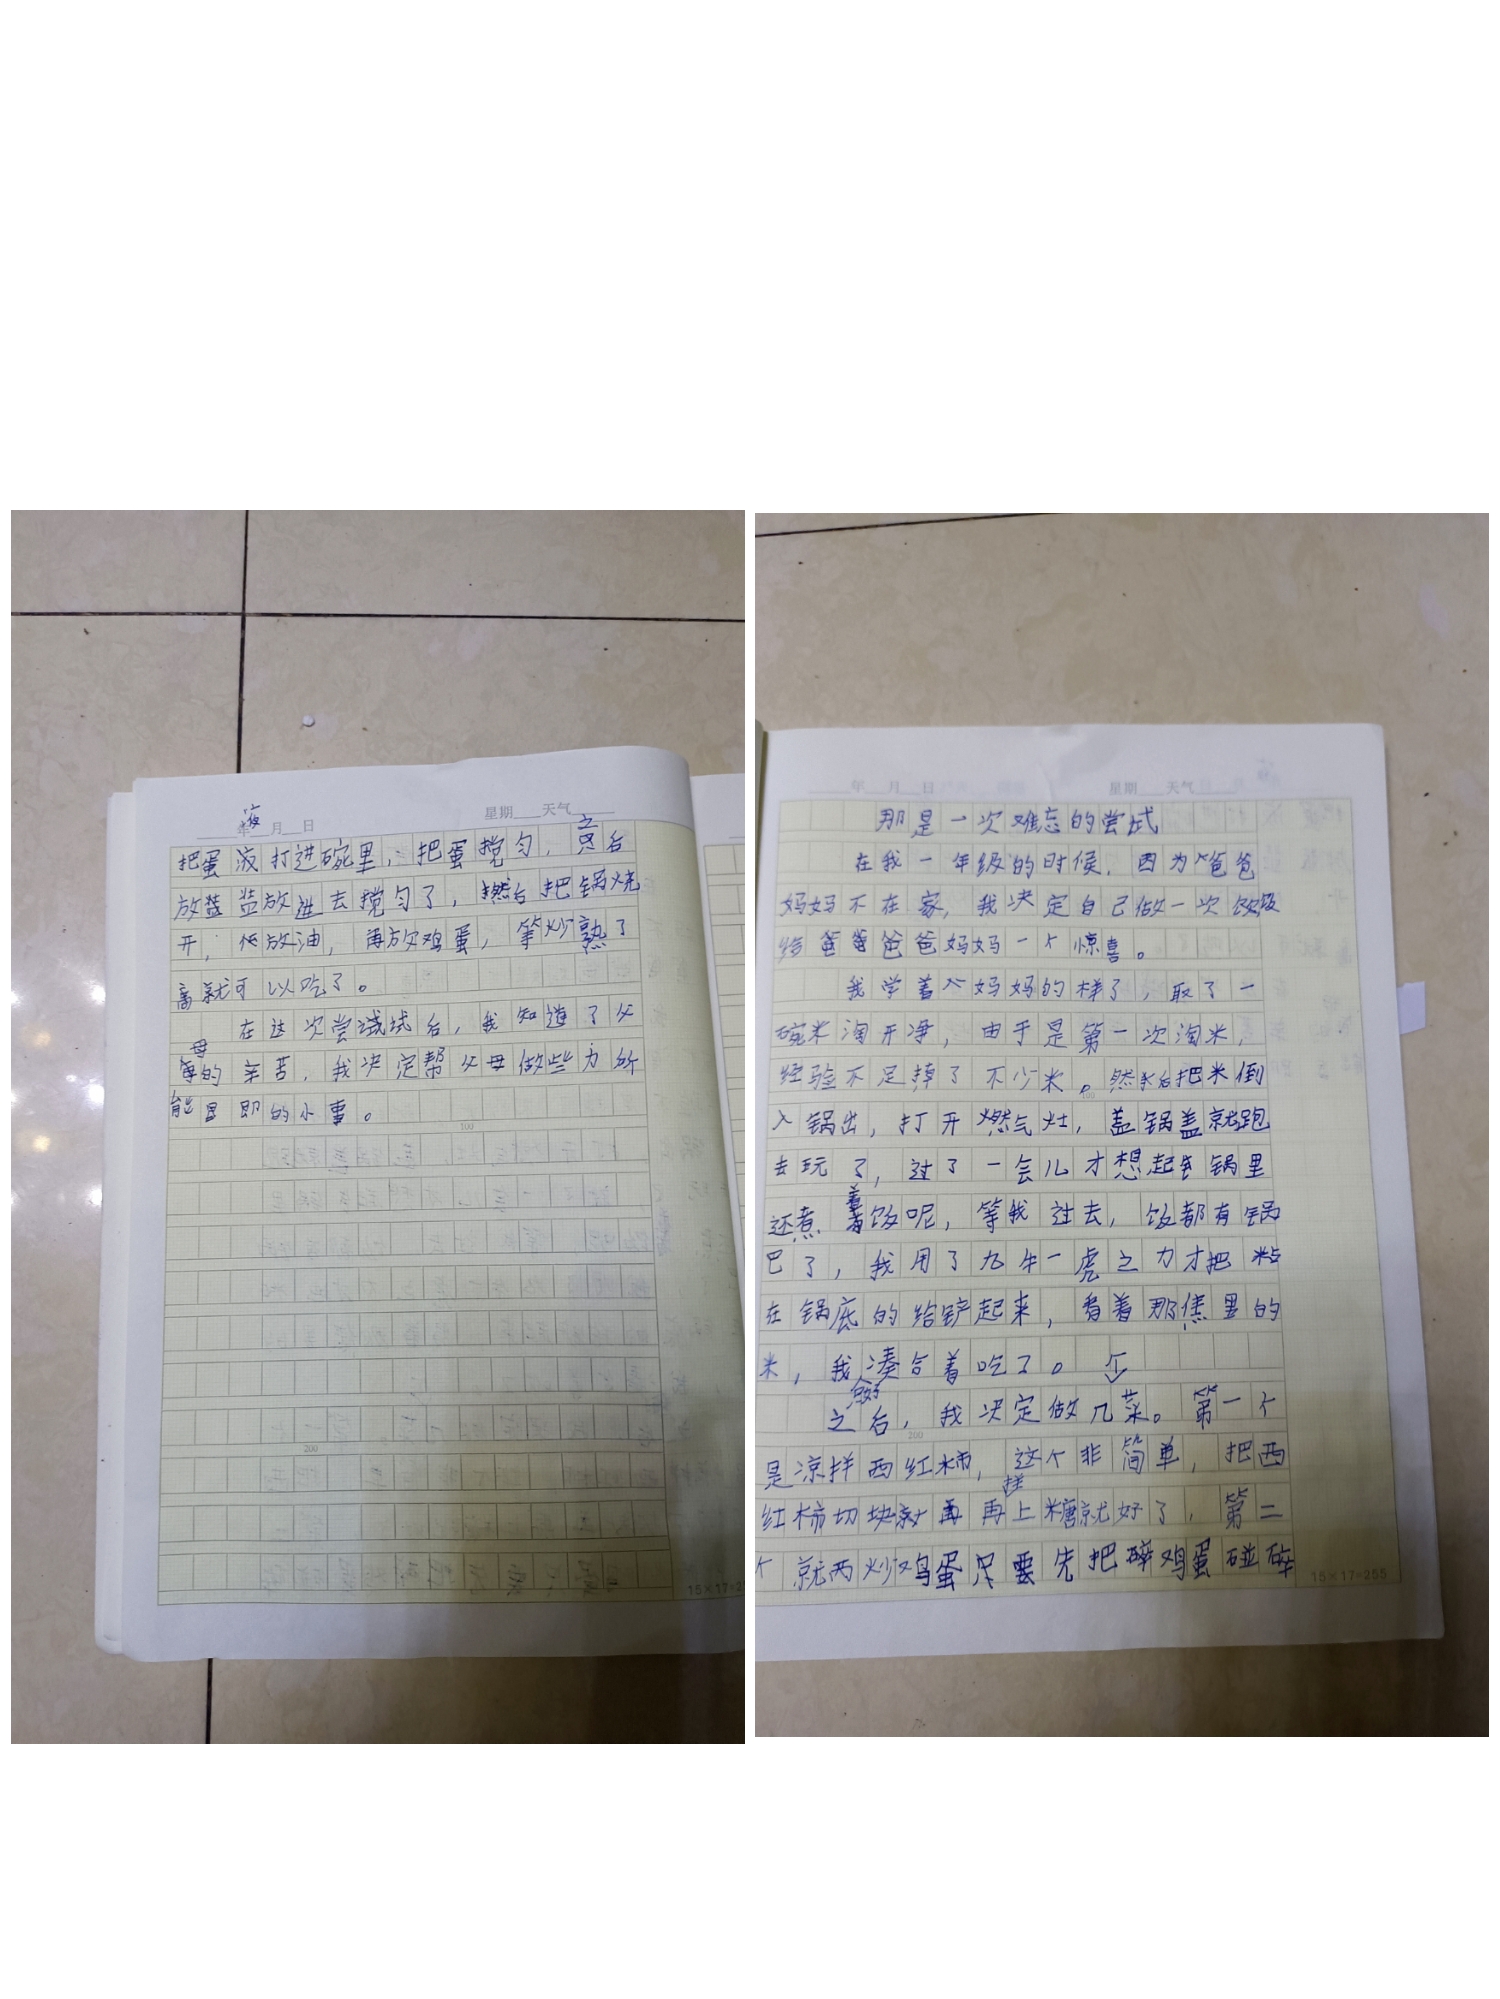 那是一次难忘的尝试
在我一年级的时候，因为爸爸
妈妈不在家，我决定自己做一次饭
给爸爸妈妈一个惊喜。
我学着妈妈的样子，取了一
碗米淘干净，由于是第一次淘米，
经验不足掉了不少米。然后把米倒
入锅里，打开燃气灶，盖锅盖就跑
去玩了，过了一会儿才想起去锅里
还煮着饭呢，等我过去，饭都有锅
巴了，我用了九牛一虎之力才把粘
在锅底的给铲起来，看着那焦黑的
米，我凑合着吃了。
之后，我决定做几个菜。第一个
是凉拌西红柿，这个非简单，把西
红柿切块就再拌上糖就好了，第二
个就炒鸡蛋只要先把鸡蛋碰碎
年 月 日 星期 天气
15×17=255
100
200
年 月 日 星期 天气
把蛋液打进碗里，把蛋搅匀，之后
放盐放进去搅匀了，然后把锅烧
开，放油，再放鸡蛋，等炒熟了
就可以吃了。
在这次尝试后，我知道了父
母的辛苦，我决定帮父母做些力所
能及的小事。
100
200
15×17=25